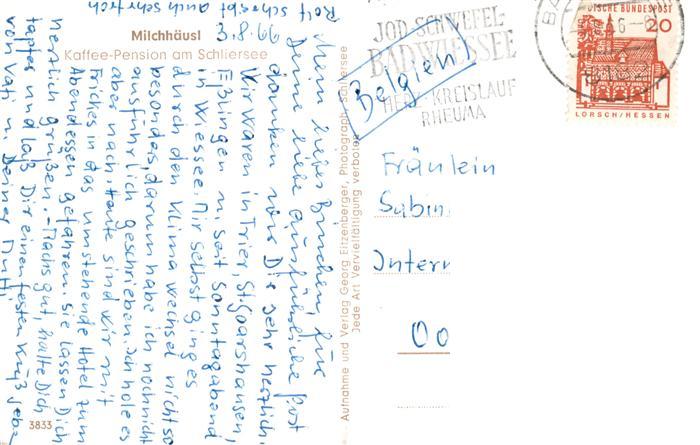 Milchhäusl
Kaffee-Pension am Schliersee
99.8.3
Mein liebes Binchen, für
Deine liebe ausführliche Post
danken wir Dir sehr herzlich.
Wir waren in Trier, St. Goarshausen,
Eßlingen u. seit Sonntagabend
in Wiessee. Mir selbst ging es
durch den Klimawechsel nicht so
besonders, darum habe ich noch nicht
ausführlich geschrieben. Ich hole es
aber nach. Heute sind wir mit
Friches in das umstehende Hotel zum
Abendessen gefahren. Sie lassen Dich
herzlich grüßen. - Machs gut, halte Dich
tapfer und laß Dir einen festen Kuß geben
von Vati u. Deiner Mutti
Rolf schreibt auch sehr froh
3833
Aufnahme und Verlag Georg Eitzenberger, Photograph, Schliersee
Jede Art Vervielfältigung verboten
JOD-SCHWEFEL-
BAD WIESSEE
HERZ-KREISLAUF
RHEUMA
Belgien!
DEUTSCHE BUNDESPOST
20
LORSCH/HESSEN
Fräulein
Sabin
Intern
Oo